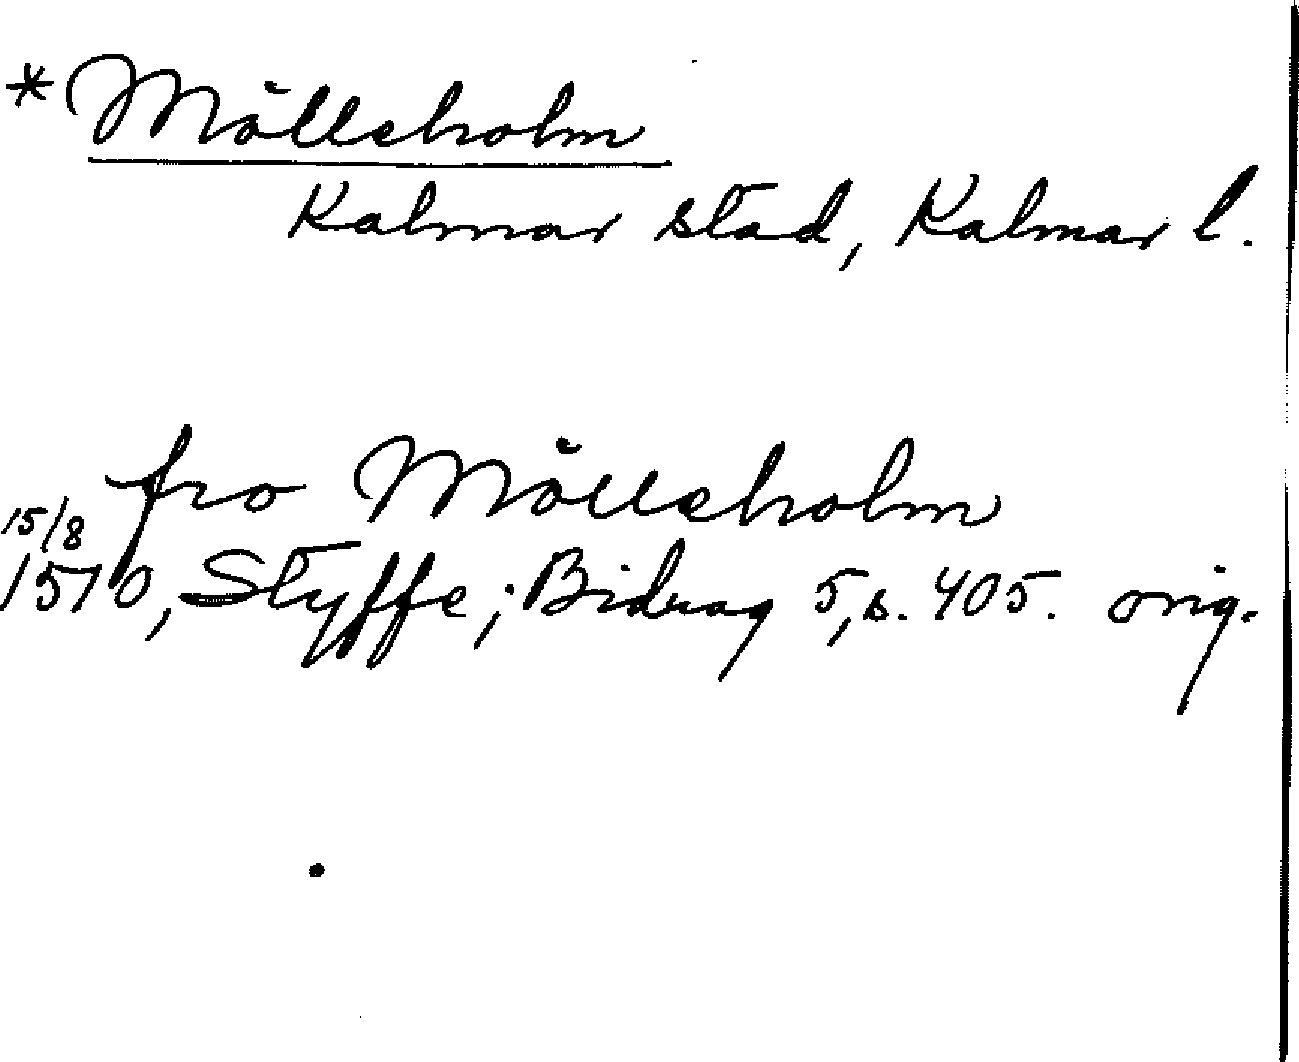 *Mölleholm
Kalmar stad, Kalmar l.
fro Mölleholm
15/8
1510, Styffe; Bidrag 5, s. 405. orig.